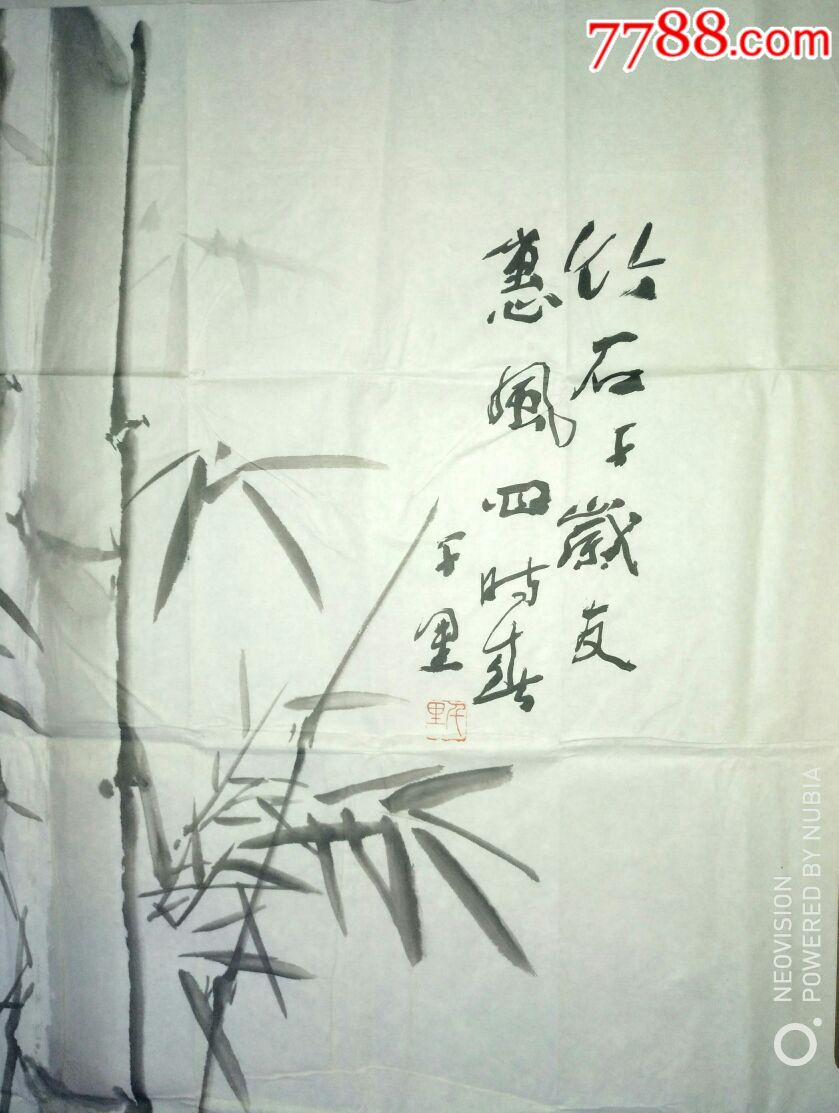 7788.com
竹石千歲友
惠風四時春
千里
千里
NEOVISION
POWERED BY NUBIA